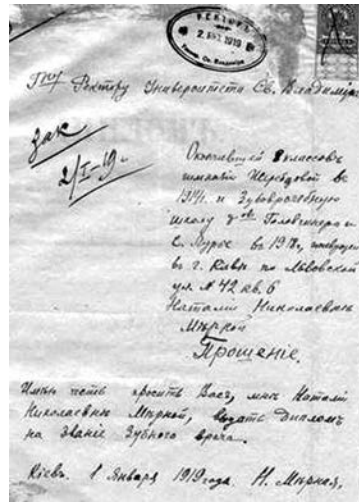 РЕКТОРЪ
2. ЯНВ 1919
Гну Ректору Университета Св. Владимира
зак
2/I-19 г
Окончившей 8 классовъ
гимназіи въ
191 г. и Зубоврачебную
школу
С. Лурье въ 19
въ г. Кіевѣ по Львовской
ул. № 42 кв. 6
Наталіи Николаевны
Мѣрной
Прошеніе.
Имѣю честь просить Васъ, мнѣ Наталіи
Николаевнѣ Мѣрной, выдать дипломъ
на званіе Зубного врача.
Кіевъ. 1 Января 1919 года. Н. Мѣрная.